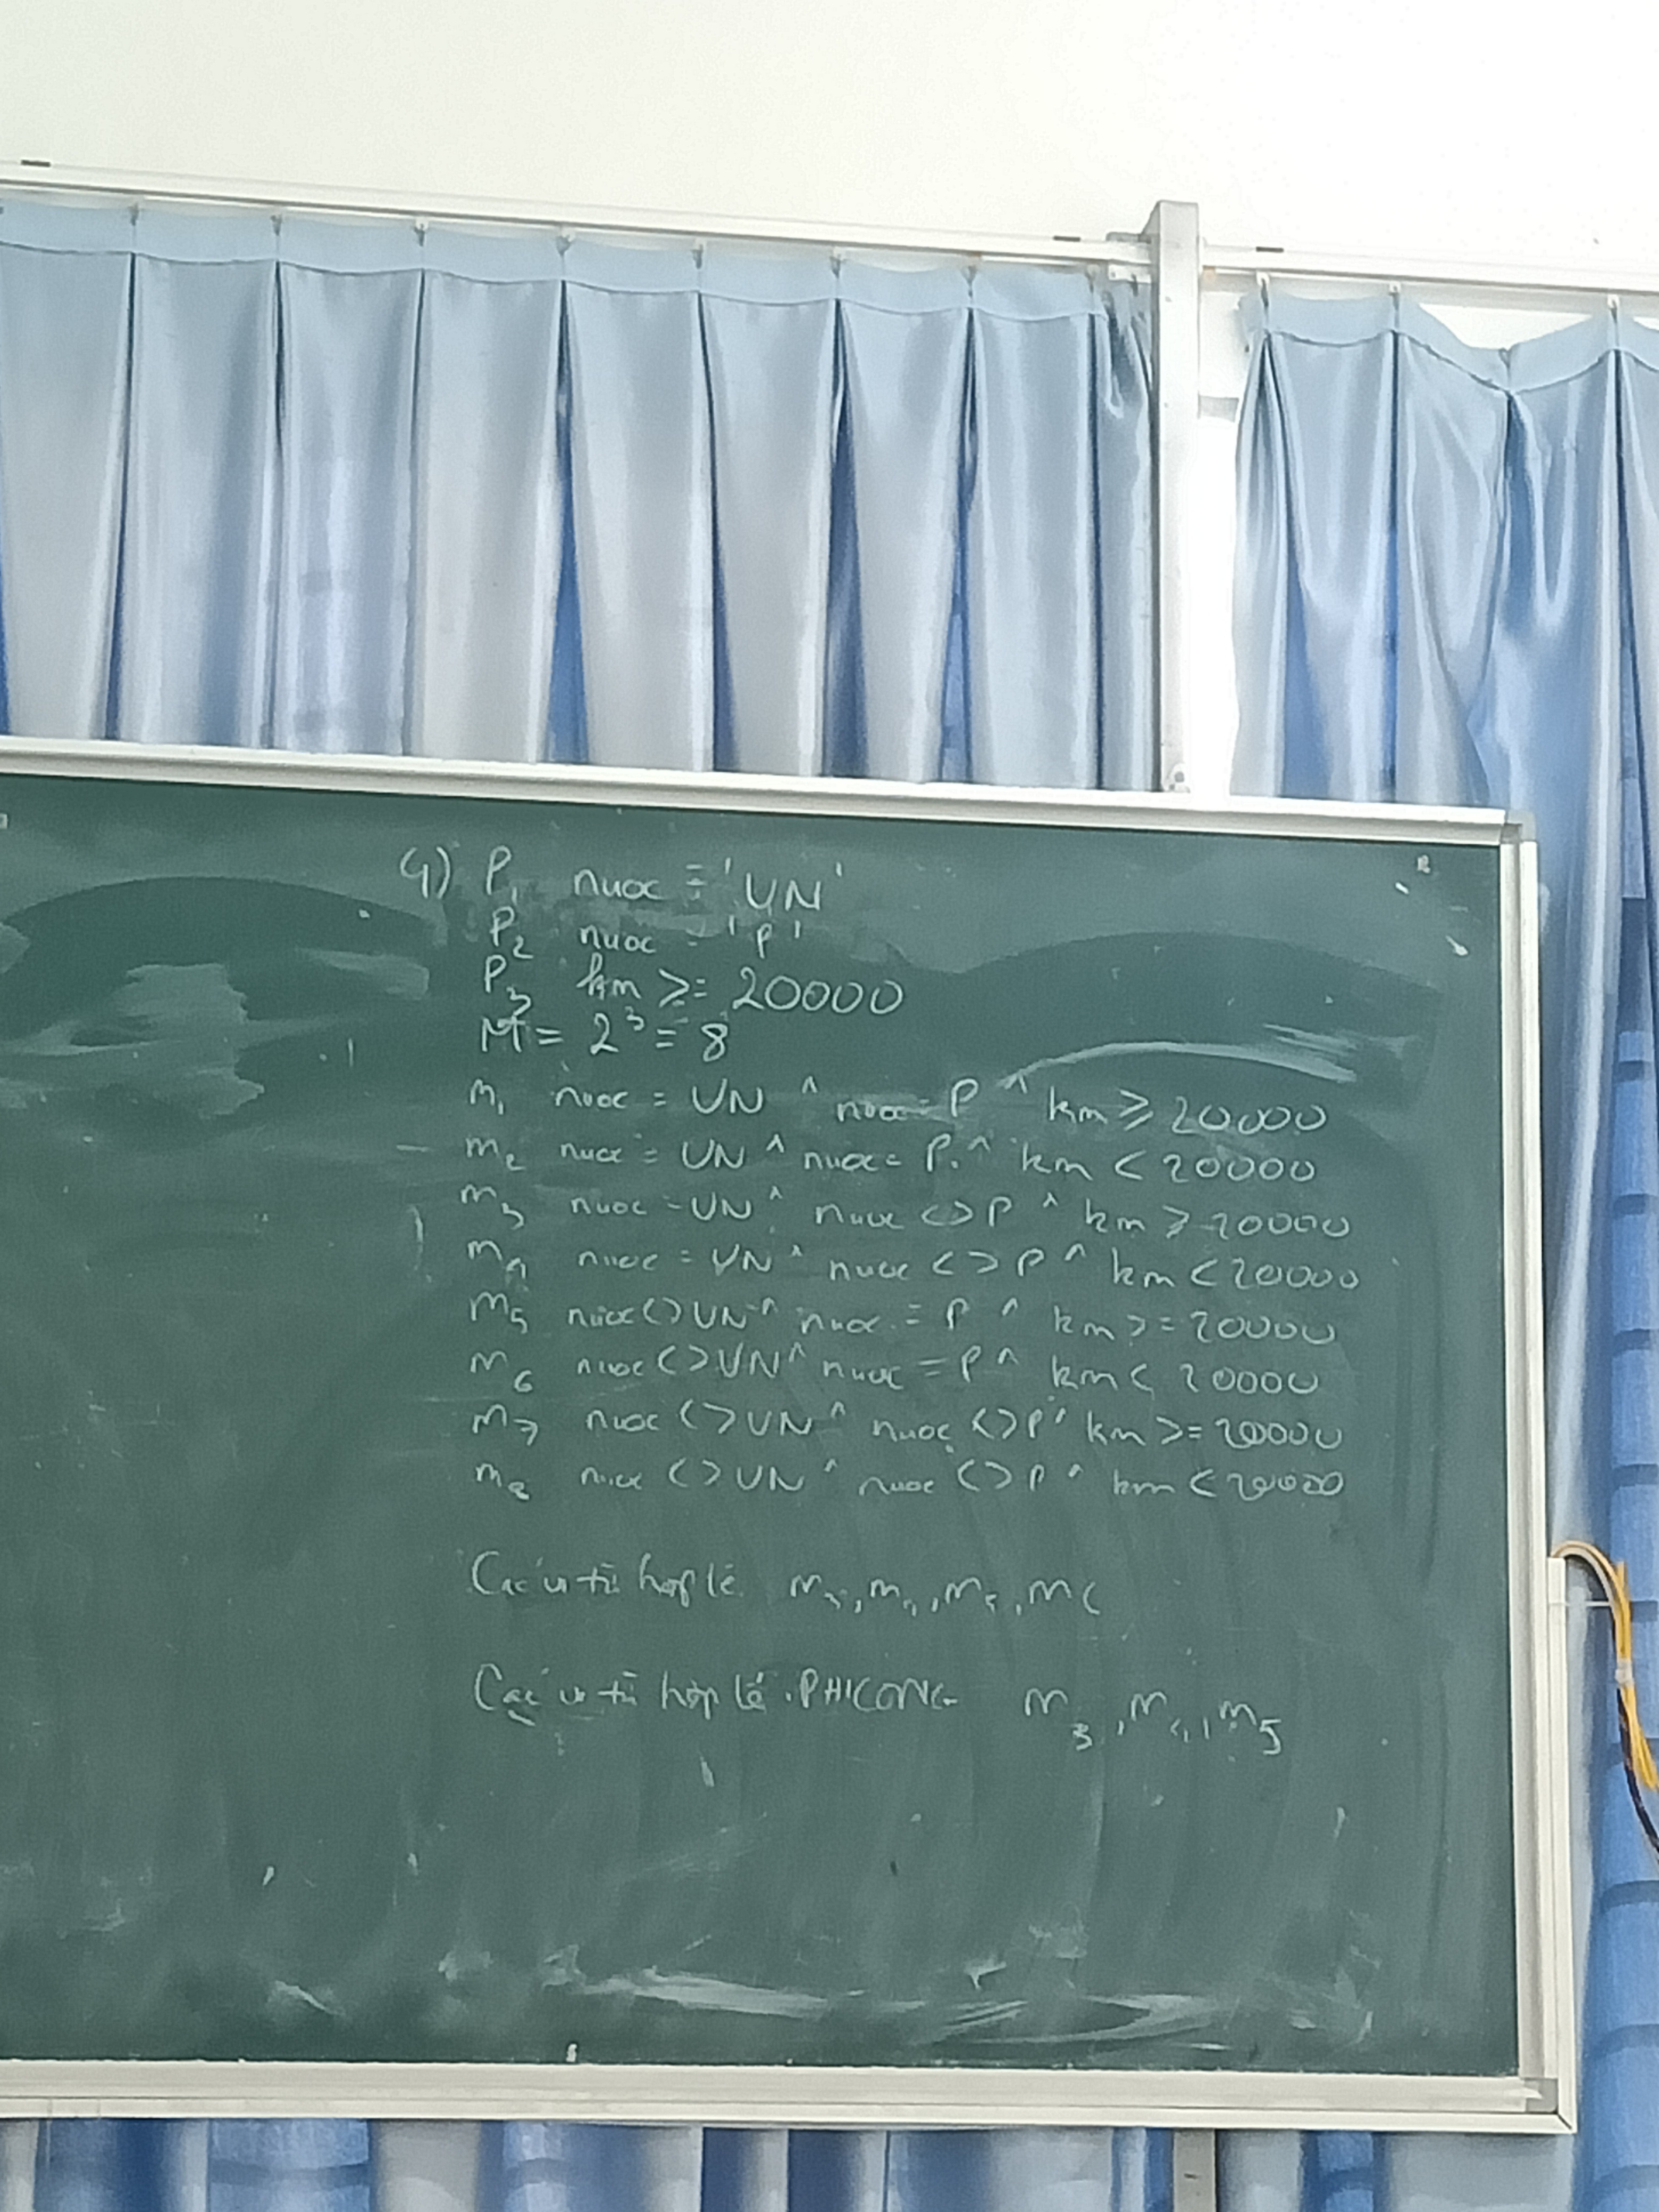 4) P1 nuoc = 'UN'
P2 nuoc = 'P'
P3 km >= 20000
M = 2³ = 8
m1 nuoc = UN ^ nuoc = P ^ km ≥ 20000
m2 nuoc = UN ^ nuoc = P. ^ km < 20000
m3 nuoc = UN ^ nuoc <> P ^ km ≥ 20000
m4 nuoc = UN ^ nuoc <> P ^ km < 20000
m5 nuoc <> UN ^ nuoc = P ^ km >= 20000
m6 nuoc <> UN ^ nuoc = P ^ km < 20000
m7 nuoc <> UN ^ nuoc <> P ^ km >= 20000
m8 nuoc <> UN ^ nuoc <> P ^ km < 20000
Các vị từ hợp lệ m3, m4, m5, m6
Các vị từ hợp lệ PHICONG m3, m4, m5